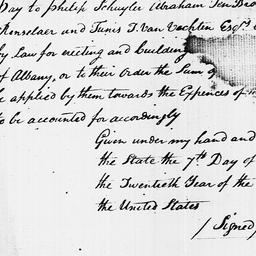 Pay to Philip Schuyler Abraham Ten Bro
Renselaer and Tunis T. Van Vechten Esqrs
by Law for erecting and building
of Albany, or to their Order the Sum of
be applied by them towards the Expences of
to be accounted for accordingly
Given under my hand and
the State the 7th Day of
the Twentieth Year of the
the United States
(Signed)